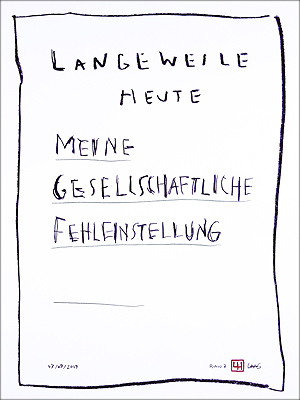 LANGEWEILE
HEUTE
MEINE
GESELLSCHAFTLICHE
FEHLEINSTELLUNG